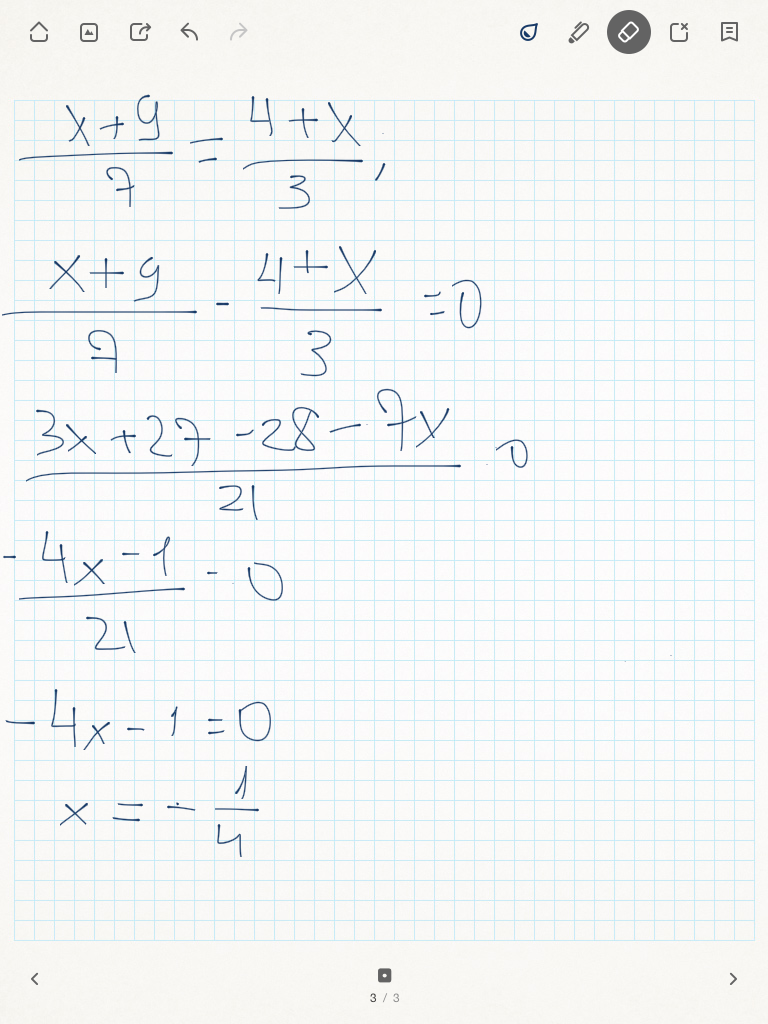 (x+9)/7 = (4+x)/3,
(x+9)/7 - (4+x)/3 =0
(3x+27-28-7x)/21 0
(-4x-1)/21 - 0
-4x-1=0
x = - 1/4
3 / 3